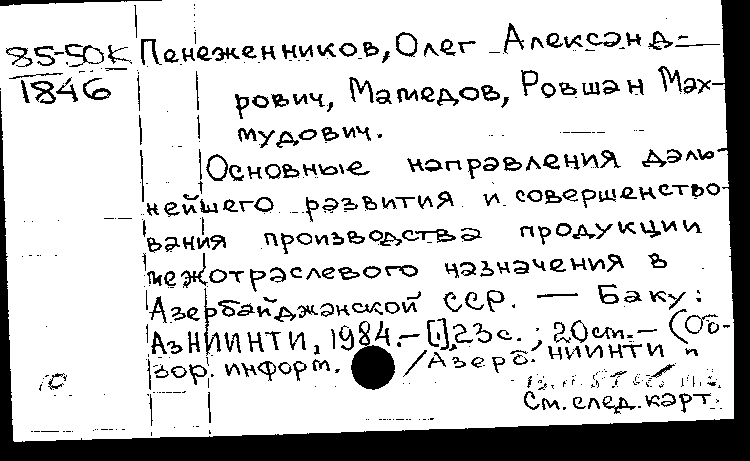 85-50К Пенеженников, Олег Александ-
1846 рович, Мамедов, Ровшан Мах-
мудович.
Основные направления даль-
нейшего развития и совершенство-
вания производства продукции
межотраслевого назначения в
Азербайджанской ССР. — Баку:
АзНИИНТИ, 1984. – [1], 23 с. ; 20 см. – (Об-
зор. информ. / Азерб. НИИНТИ и
10
См. след. карт.